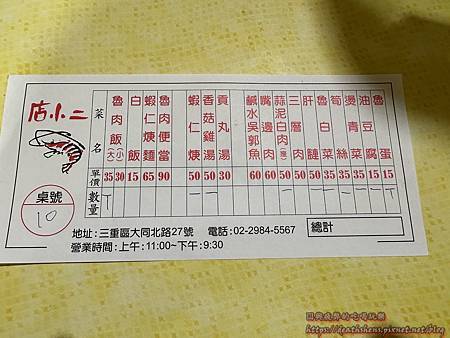 店小二
菜名
單價
數量
魯肉飯(大)(小) 35 30
白飯 15
蝦仁焿麵 65
魯肉便當 90
蝦仁焿 50
香菇雞湯 50
貢丸湯 30
鹹水吳郭魚 60
嘴邊肉 60
蒜泥白肉(瘦) 50
三層肉 50
肝膶 50
魯白菜 35
筍絲 35
燙青菜 35
油豆腐 15
魯蛋 15
桌號
10
地址:三重區大同北路27號 電話:02-2984-5567
營業時間:上午:11:00~下午:9:30
總計
https://deathshens.pixnet.net/blog